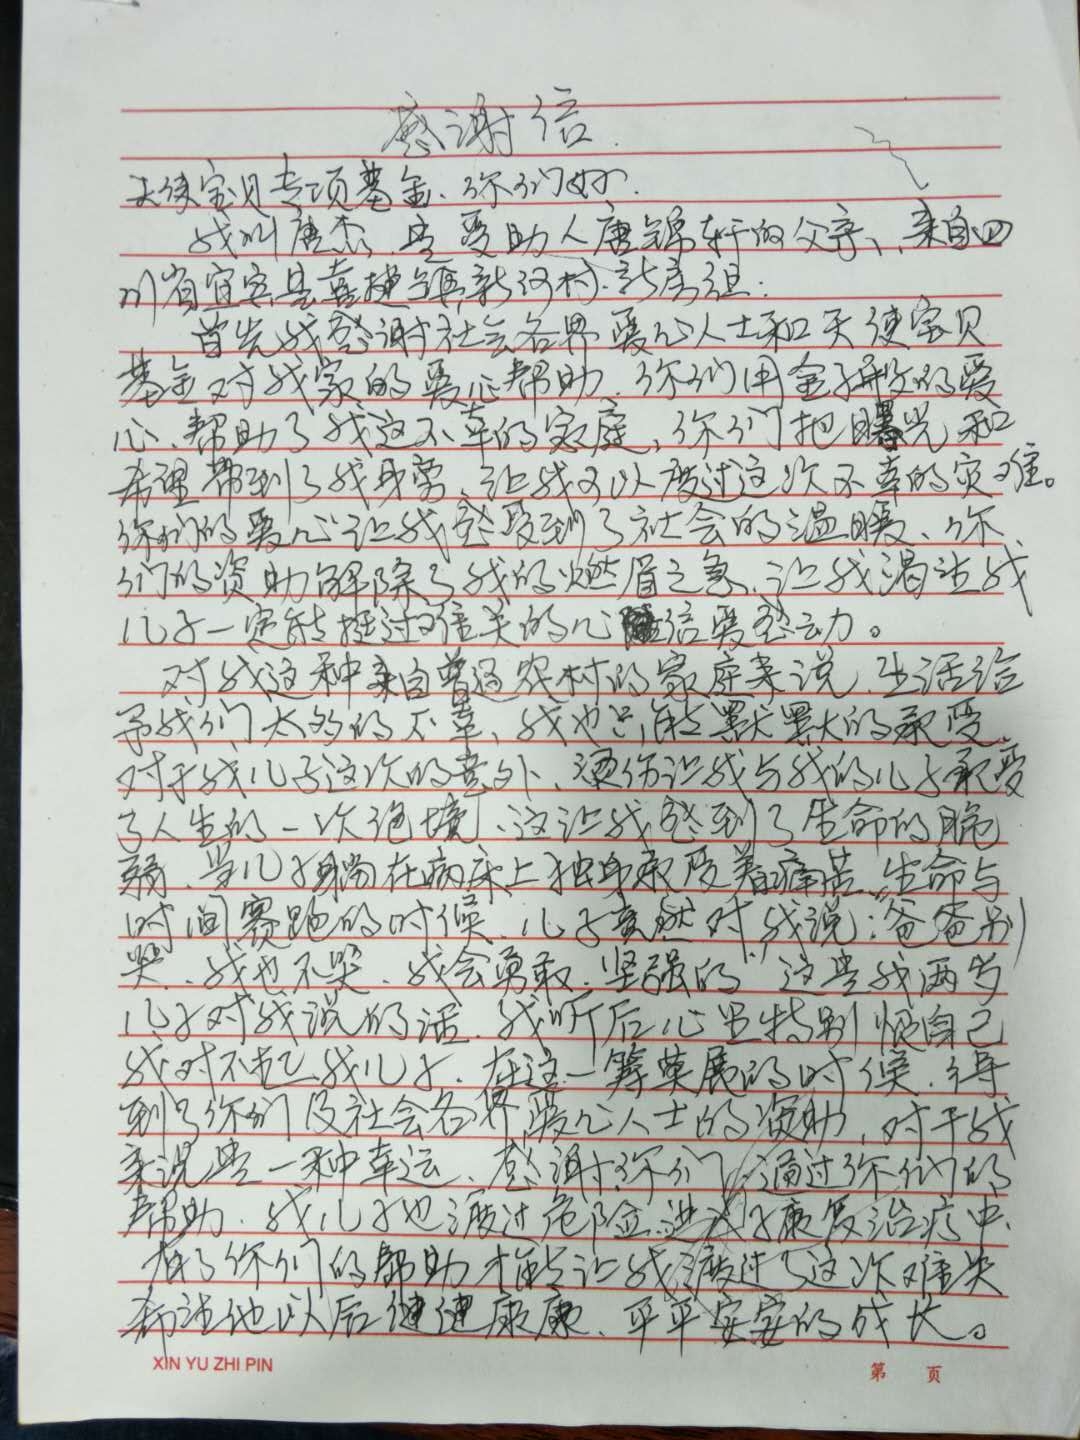 感谢信.
天使宝贝专项基金、你们好.
我叫唐杰, 是受助人唐锦轩的父亲、来自四
川省宜宾县喜捷镇新河村.新房组:
首先我感谢社会各界爱心人士和天使宝贝
基金对我家的爱心帮助. 你们用金 的爱
心、帮助了我这不幸的家庭, 你们把曙光和
希望带到了我身旁、让我可以度过这次不幸的灾难。
你们的爱心让我感受到了社会的温暖、你
们的资助解除了我的燃眉之急、让我渴望我
儿子一定能挺过难关的心 信爱感动。
对我这种来自普通农村的家庭来说、生活给
予我们太多的不幸、我也只能默默的承受、
对于我儿子这次的意外、烫伤让我与我的儿子承受
了人生的一次绝境、这让我感到了生命的脆
弱、当儿子躺在病床上独身承受着痛苦、生命与
时间赛跑的时候、儿子竟然对我说:爸爸别
哭、我也不哭、我会勇敢、坚强的 这是我两岁
儿子对我说的话、我听后心里特别恨自己
我对不起我儿子、在这一筹莫展的时候、得
到了你们及社会各界爱心人士的资助, 对于我
来说是一种幸运、感谢你们、通过你们的
帮助、我儿子也渡过危险、进入了康复治疗中、
有了你们的帮助才能让我渡过了这次难关
希望他以后健健康康、平平安安的成长。
XIN YU ZHI PIN
第 页